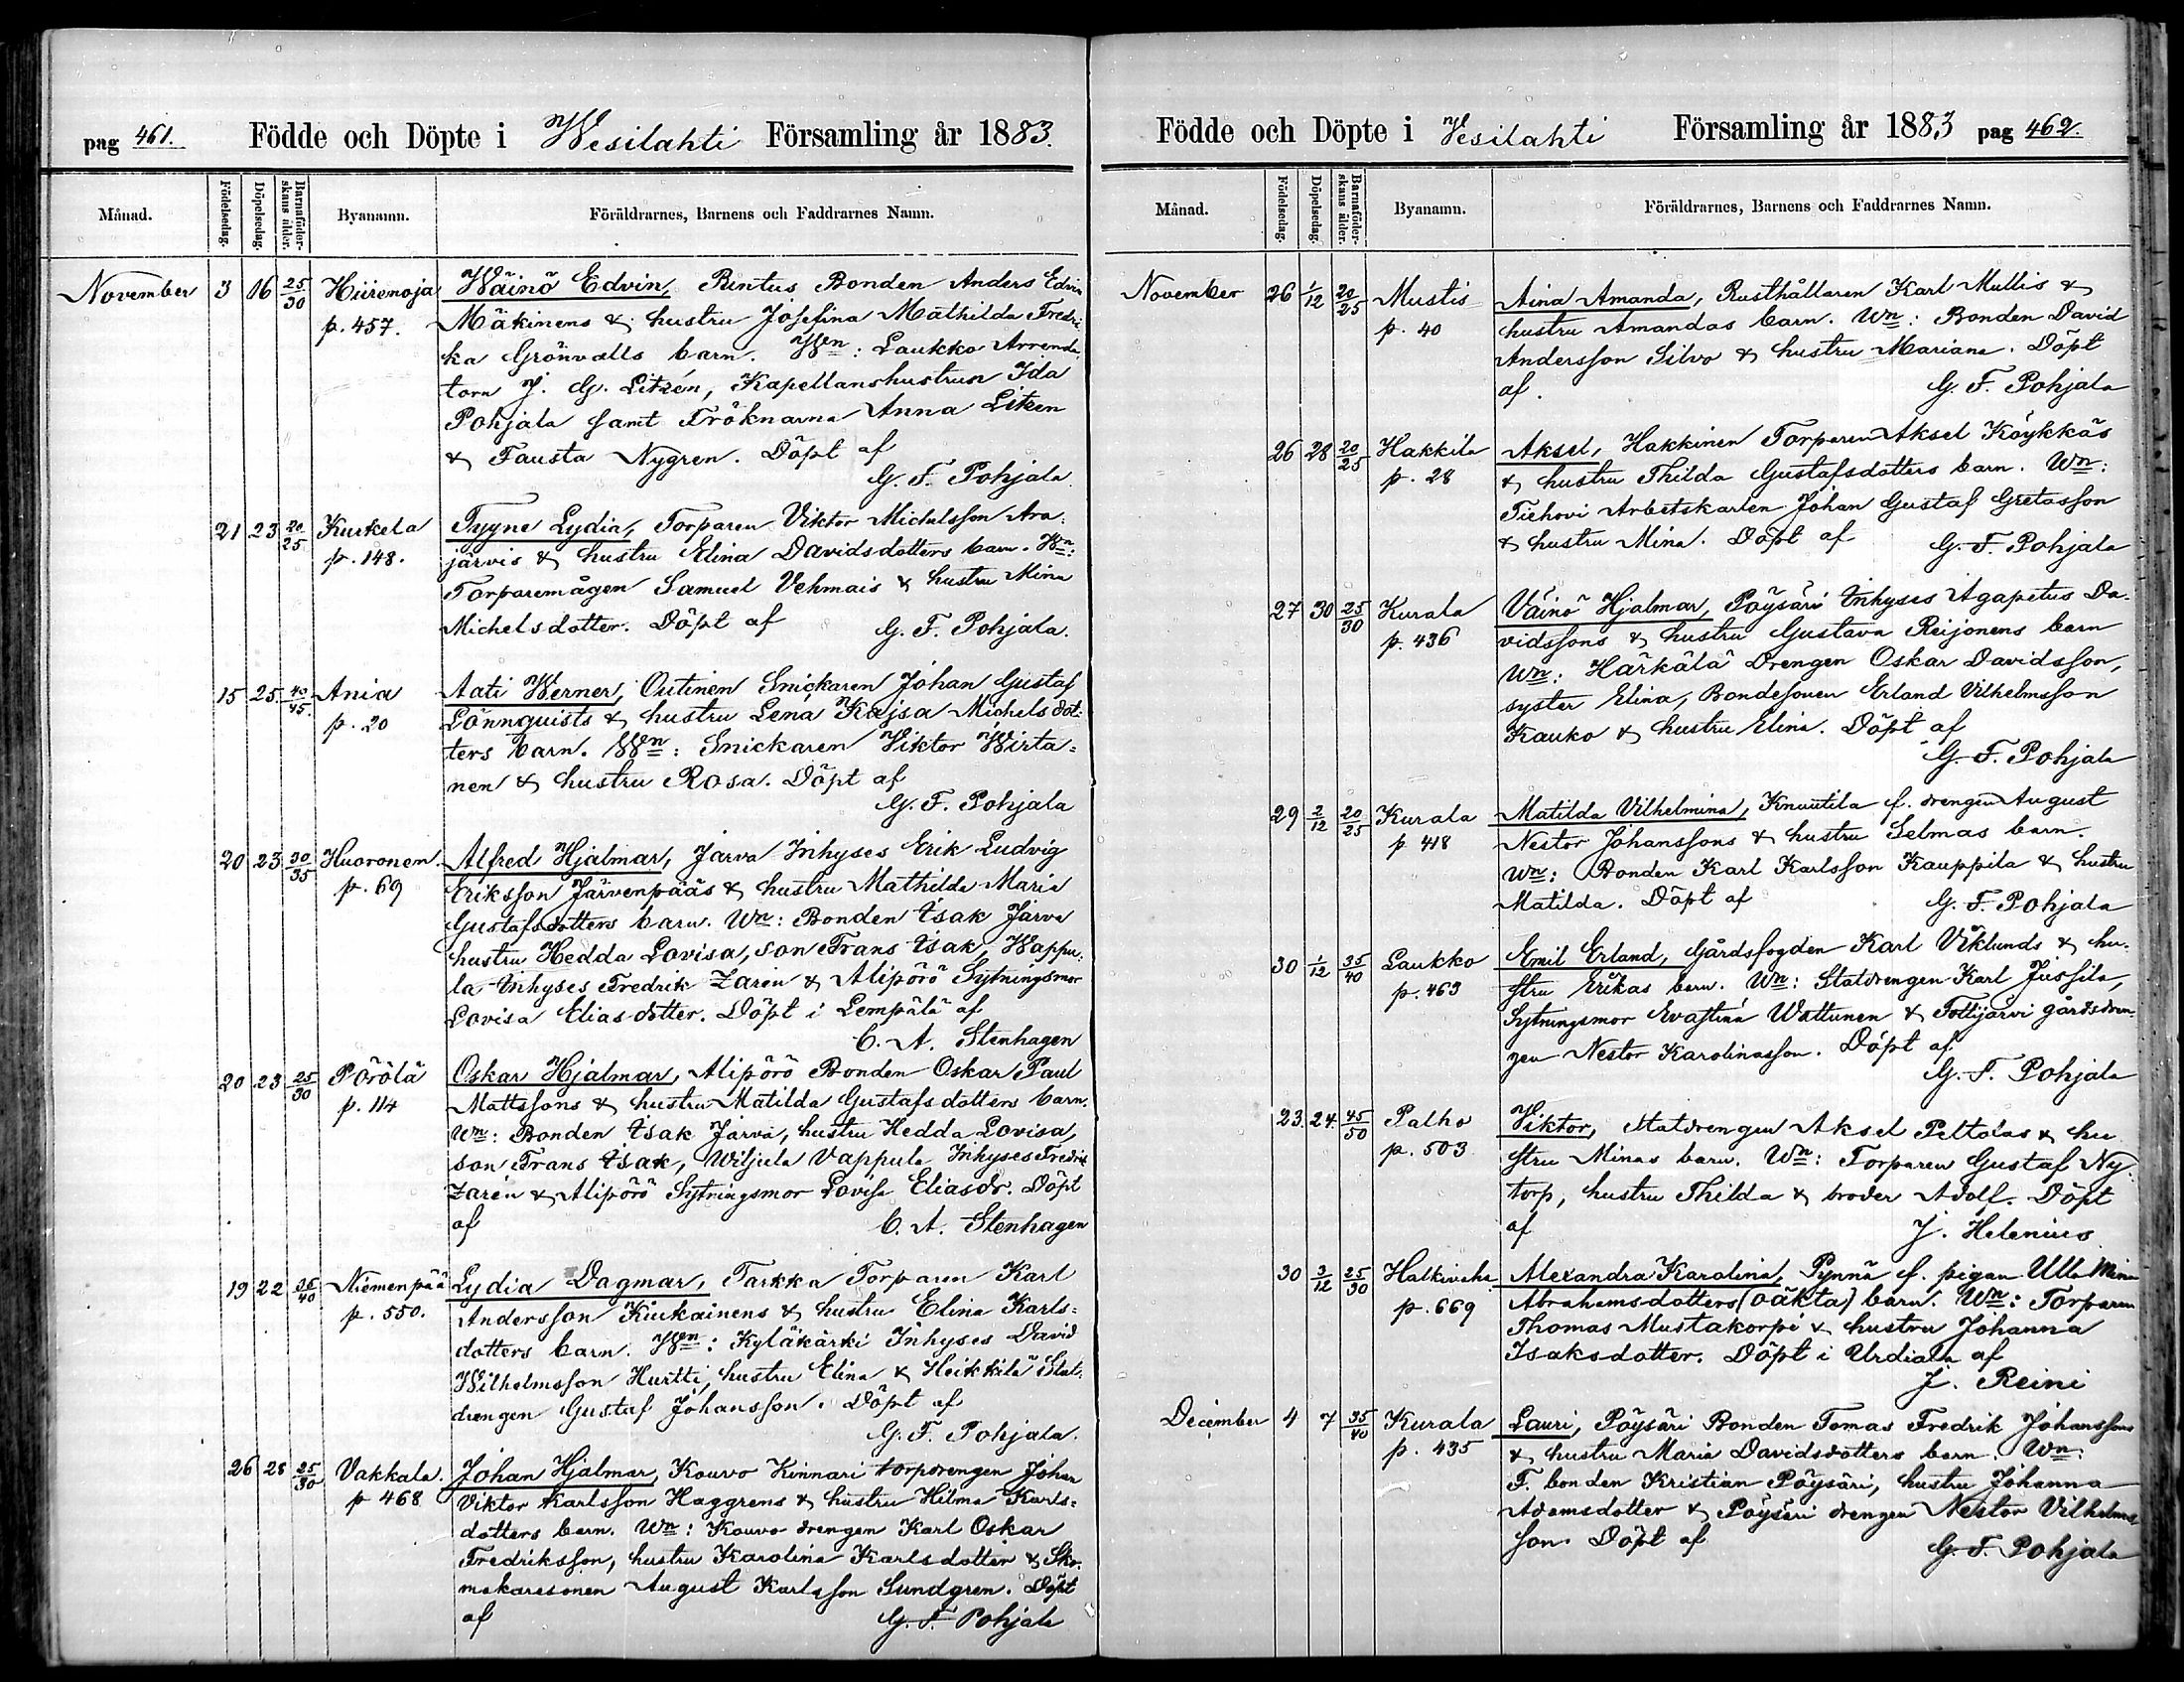 pag 461. Födde och Döpte i Wesilahti Församling år 1883.
Månad. Födelsedag. Döpelsedag. Barnaföderskans ålder. Byanamn. Föräldrarnes, Barnens och Faddrarnes Namn.
November 3 16 25/30 Hiirenoja Wäinö Edvin, Pentus Bonden Anders Edvin
p. 457. Mäkinens & hustru Josefina Mathilda Fredri
ka Grönvalls barn. Wn: Laukko Arrenda
torn J. G. Litzén, Kapellanshustrun Ida
Pohjala samt Fröknarna Anna Litzen
& Fausta Nygren. Döpt af
G. F. Pohjala.
21 23 20/25 Kurkela Tyyne Lydia, Torparen Viktor Michelsson Ara:
p. 148. järvis & hustru Elina Davidsdotters barn. Wn:
Torparemågen Samuel Vehmais & hustru Mina
Michelsdotter. Döpt af G. F. Pohjala.
15 25. 40/45. Ania Aati Werner, Outinen Snickaren Johan Gustaf
p. 20 Lönnquists & hustru Lena Kajsa Michelsdot:
ters barn. Wn: Snickaren Viktor Wirta:
nen & hustru Rosa. Döpt af
G. F. Pohjala
20 23 30/35 Huovonen. Alfred Hjalmar, Järva Inhyses Erik Ludvig
p. 69 Eriksson Järvenpääs & hustru Mathilda Maria
Gustafsdotters barn. Wn: Bonden Isak Järva
hustru Hedda Lovisa, son Frans Isak, Wappu:
la Inhyses Fredrik Zarén & Alipörö Sytningsmor
Lovisa Eliasdotter. Döpt i Lempälä af
C. A. Stenhagen
20 23 25/30 Pörölä Oskar Hjalmar, Alipörö Bonden Oskar Paul
p. 114 Mattssons & hustru Matilda Gustafsdotters barn.
Wn: Bonden Isak Järva, hustru Hedda Lovisa,
son Frans Isak, Wiljula Vappula Inhyses Fredrik
Zarén & Alipörö Sytningsmor Lovisa Eliasdr. Döpt
af C. A. Stenhagen
19 22 36/40 Niemenpää Lydia Dagmar, Tarkka Torparen Karl
p. 550. Andersson Kiukainens & hustru Elina Karls:
dotters barn. Wn: Kyläkärki Inhyses David
Wilhelmsson Hurtti, hustru Elina & Heikkilä Stat:
drengen Gustaf Johansson. Döpt af
G. F. Pohjala.
26 28 25/30 Vakkala. Johan Hjalmar, Kouvo Kinnari torpdrengen Johan
p 468 Viktor Karlsson Haggrens & hustru Hilma Karls:
dotters barn. Wn: Kouvo drengen Karl Oskar
Fredriksson, hustru Karolina Karlsdotter & Sko:
makaresonen August Karlsson Sundgren. Döpt
af G. F. Pohjala
Födde och Döpte i Vesilahti Församling år 1883 pag 462.
Månad. Födelsedag. Döpelsedag. Barnaföderskans ålder. Byanamn. Föräldrarnes, Barnens och Faddrarnes Namn.
November 26 1/12 20/25 Mustis Aina Amanda, Rusthållaren Karl Mullis &
p. 40 hustru Amandas barn. Wn: Bonden David
Andersson Silvo & hustru Mariana. Döpt
af. G. F. Pohjala
26 28 20/25 Hakkila Aksel, Hakkinen Torparen Aksel Köykkäs
p. 28 & hustru Thilda Gustafsdotters barn. Wn:
Tiehovi Arbetskarlen Johan Gustaf Gretasson
& hustru Mina. Döpt af G. F. Pohjala
27 30 25/30 Kurala Väinö Hjalmar, Pöysäri Inhyses Agapetus Da:
p. 436 vidssons & hustru Gustava Reijonens barn
Wn: Härkälä Drengen Oskar Davidsson,
syster Elina, Bondesonen Erland Vilhelmsson
Kauko & hustru Elina. Döpt af
G. F. Pohjala
29 2/12 20/25 Kurala Matilda Vilhelmina, Knuutila f. drengen August
p 418 Nestor Johanssons & hustru Selmas barn.
Wn: Bonden Karl Karlsson Kauppila & hustru
Matilda. Döpt af G. F. Pohjala
30 1/12 35/40 Laukko Emil Erland, Gårdsfogden Karl Viklunds & hu:
p. 463 stru Erikas barn. Wn: Statdrengen Karl Jussila,
Sytningsmor Evastina Wattunen & Tottijärvi gårdsdren:
gen Nestor Karolinasson. Döpt af
G. F. Pohjala
23. 24. 45/50 Palho Viktor, Statdrengen Aksel Peltolas & hu
p. 503 stru Minas barn. Wn: Torparen Gustaf Ny:
torp, hustru Thilda & broder Adolf. Döpt
af J. Helenius
30 3/12 25/30 Halkivaha Alexandra Karolina, Pynnä f. pigan Ulla Mina
p. 669 Abrahamsdotters (oäkta) barn. Wn: Torparen
Thomas Mustakorpi & hustru Johanna
Isaksdotter. Döpt i Urdiala af
J. Reini
December 4 7 35/40 Kurala Lauri, Pöysäri Bonden Tomas Fredrik Johanssons
p. 435 & hustru Maria Davidsdotters barn. Wn:
F. bonden Kristian Pöysäri, hustru Johanna
Adamsdotter & Pöysäri drengen Nestor Vilhelms
son. Döpt af G. F. Pohjala